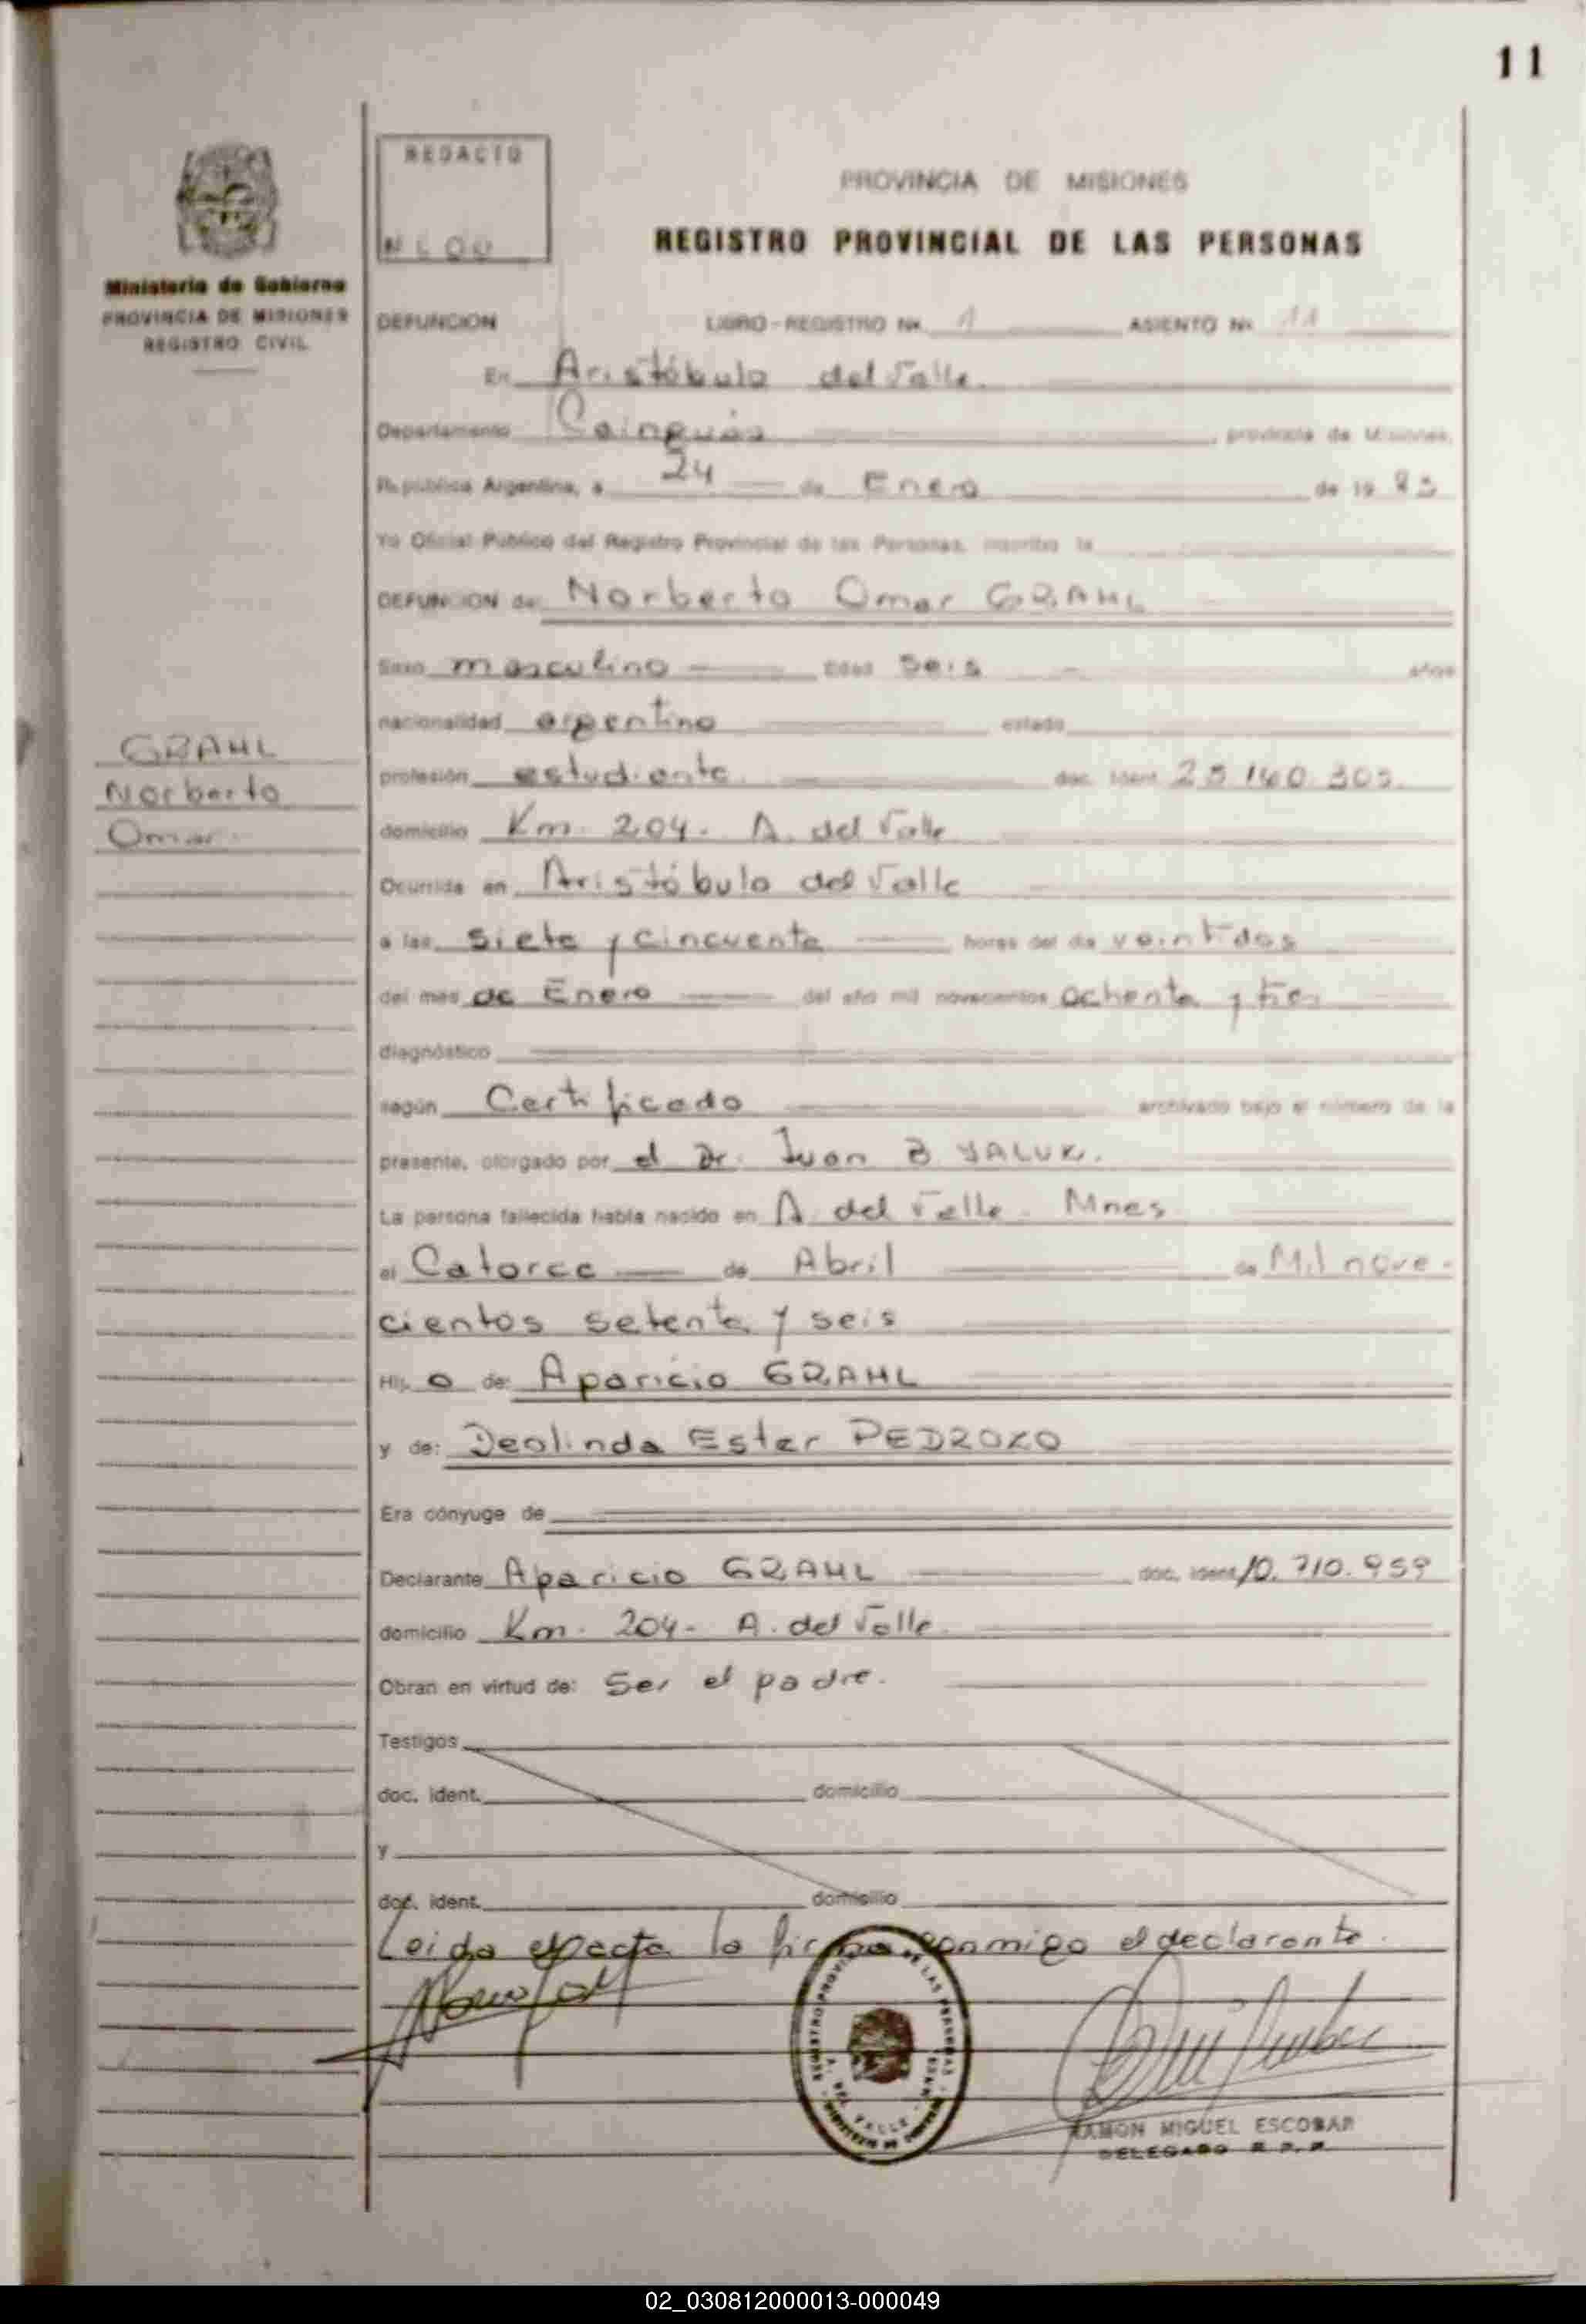 11
REDACTO
PROVINCIA DE MISIONES
REGISTRO PROVINCIAL DE LAS PERSONAS
Ministerio de Gobierno
PROVINCIA DE MISIONES
REGISTRO CIVIL
DEFUNCION LIBRO-REGISTRO Nº 1 ASIENTO Nº 11
En Aristóbulo del Valle.
Departamento Cainguás, provincia de Misiones,
República Argentina, a 24 de Enero de 19 83
Yo Oficial Público del Registro Provincial de las Personas, inscribo la
DEFUNCION de: Norberto Omar GRAHL
Sexo masculino Edad Seis años
nacionalidad argentino estado
GRAHL
Norberto
Omar
profesión estudiante doc. ident.
domicilio Km. 204. A. del Valle
Ocurrida en Aristóbulo del Valle
a las siete y cincuenta horas del día veintidos
del mes de Enero del año mil novecientos ochenta y tres
diagnóstico
según Certificado archivado bajo el número de la
presente, otorgado por el Dr. Juan B. YALUK.
La persona fallecida había nacido en A. del Valle. Mnes
el Catorce de Abril de Mil nove-
cientos setenta y seis
Hij o de: Aparicio GRAHL
y de: Deolinda Ester PEDROZO
Era cónyuge de
Declarante Aparicio GRAHL doc. ident. 10.710.959
domicilio Km. 204- A. del Valle.
Obran en virtud de: Ser el padre.
Testigos
doc. ident. domicilio
y
doc. ident. domicilio
Leida esta acta la firma conmigo el declarante.
RAMON MIGUEL ESCOBAR
DELEGADO R.P.P.
02_030812000013-000049